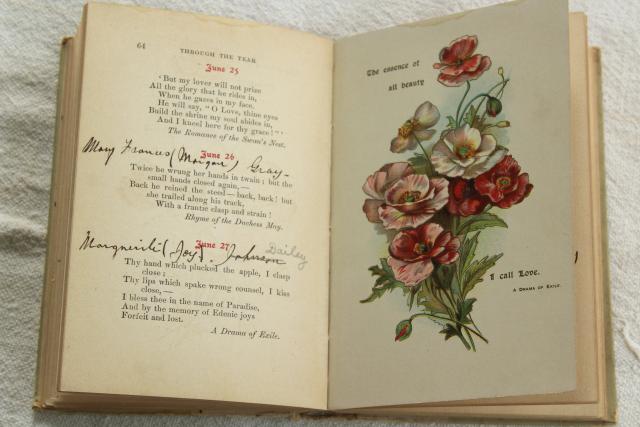 64
THROUGH THE YEAR
June 25
'But my lover will not prize
All the glory that he rides in,
When he gazes in my face.
He will say, "O Love, thine eyes
Build the shrine my soul abides in,
And I kneel here for thy grace!"'
The Romance of the Swan's Nest.
Mary Frances (Morgan) Gray-
June 26
Twice he wrung her hands in twain; but the
small hands closed again,—
Back he reined the steed—back, back! but
she trailed along his track,
With a frantic clasp and strain!
Rhyme of the Duchess May.
Marguerite (Joy) Johnson Dailey
June 27
Thy hand which plucked the apple, I clasp
close;
Thy lips which spake wrong counsel, I kiss
close,—
I bless thee in the name of Paradise,
And by the memory of Edenic joys
Forfeit and lost.
A Drama of Exile.
The essence of
all beauty
I call Love.
A DRAMA OF EXILE.